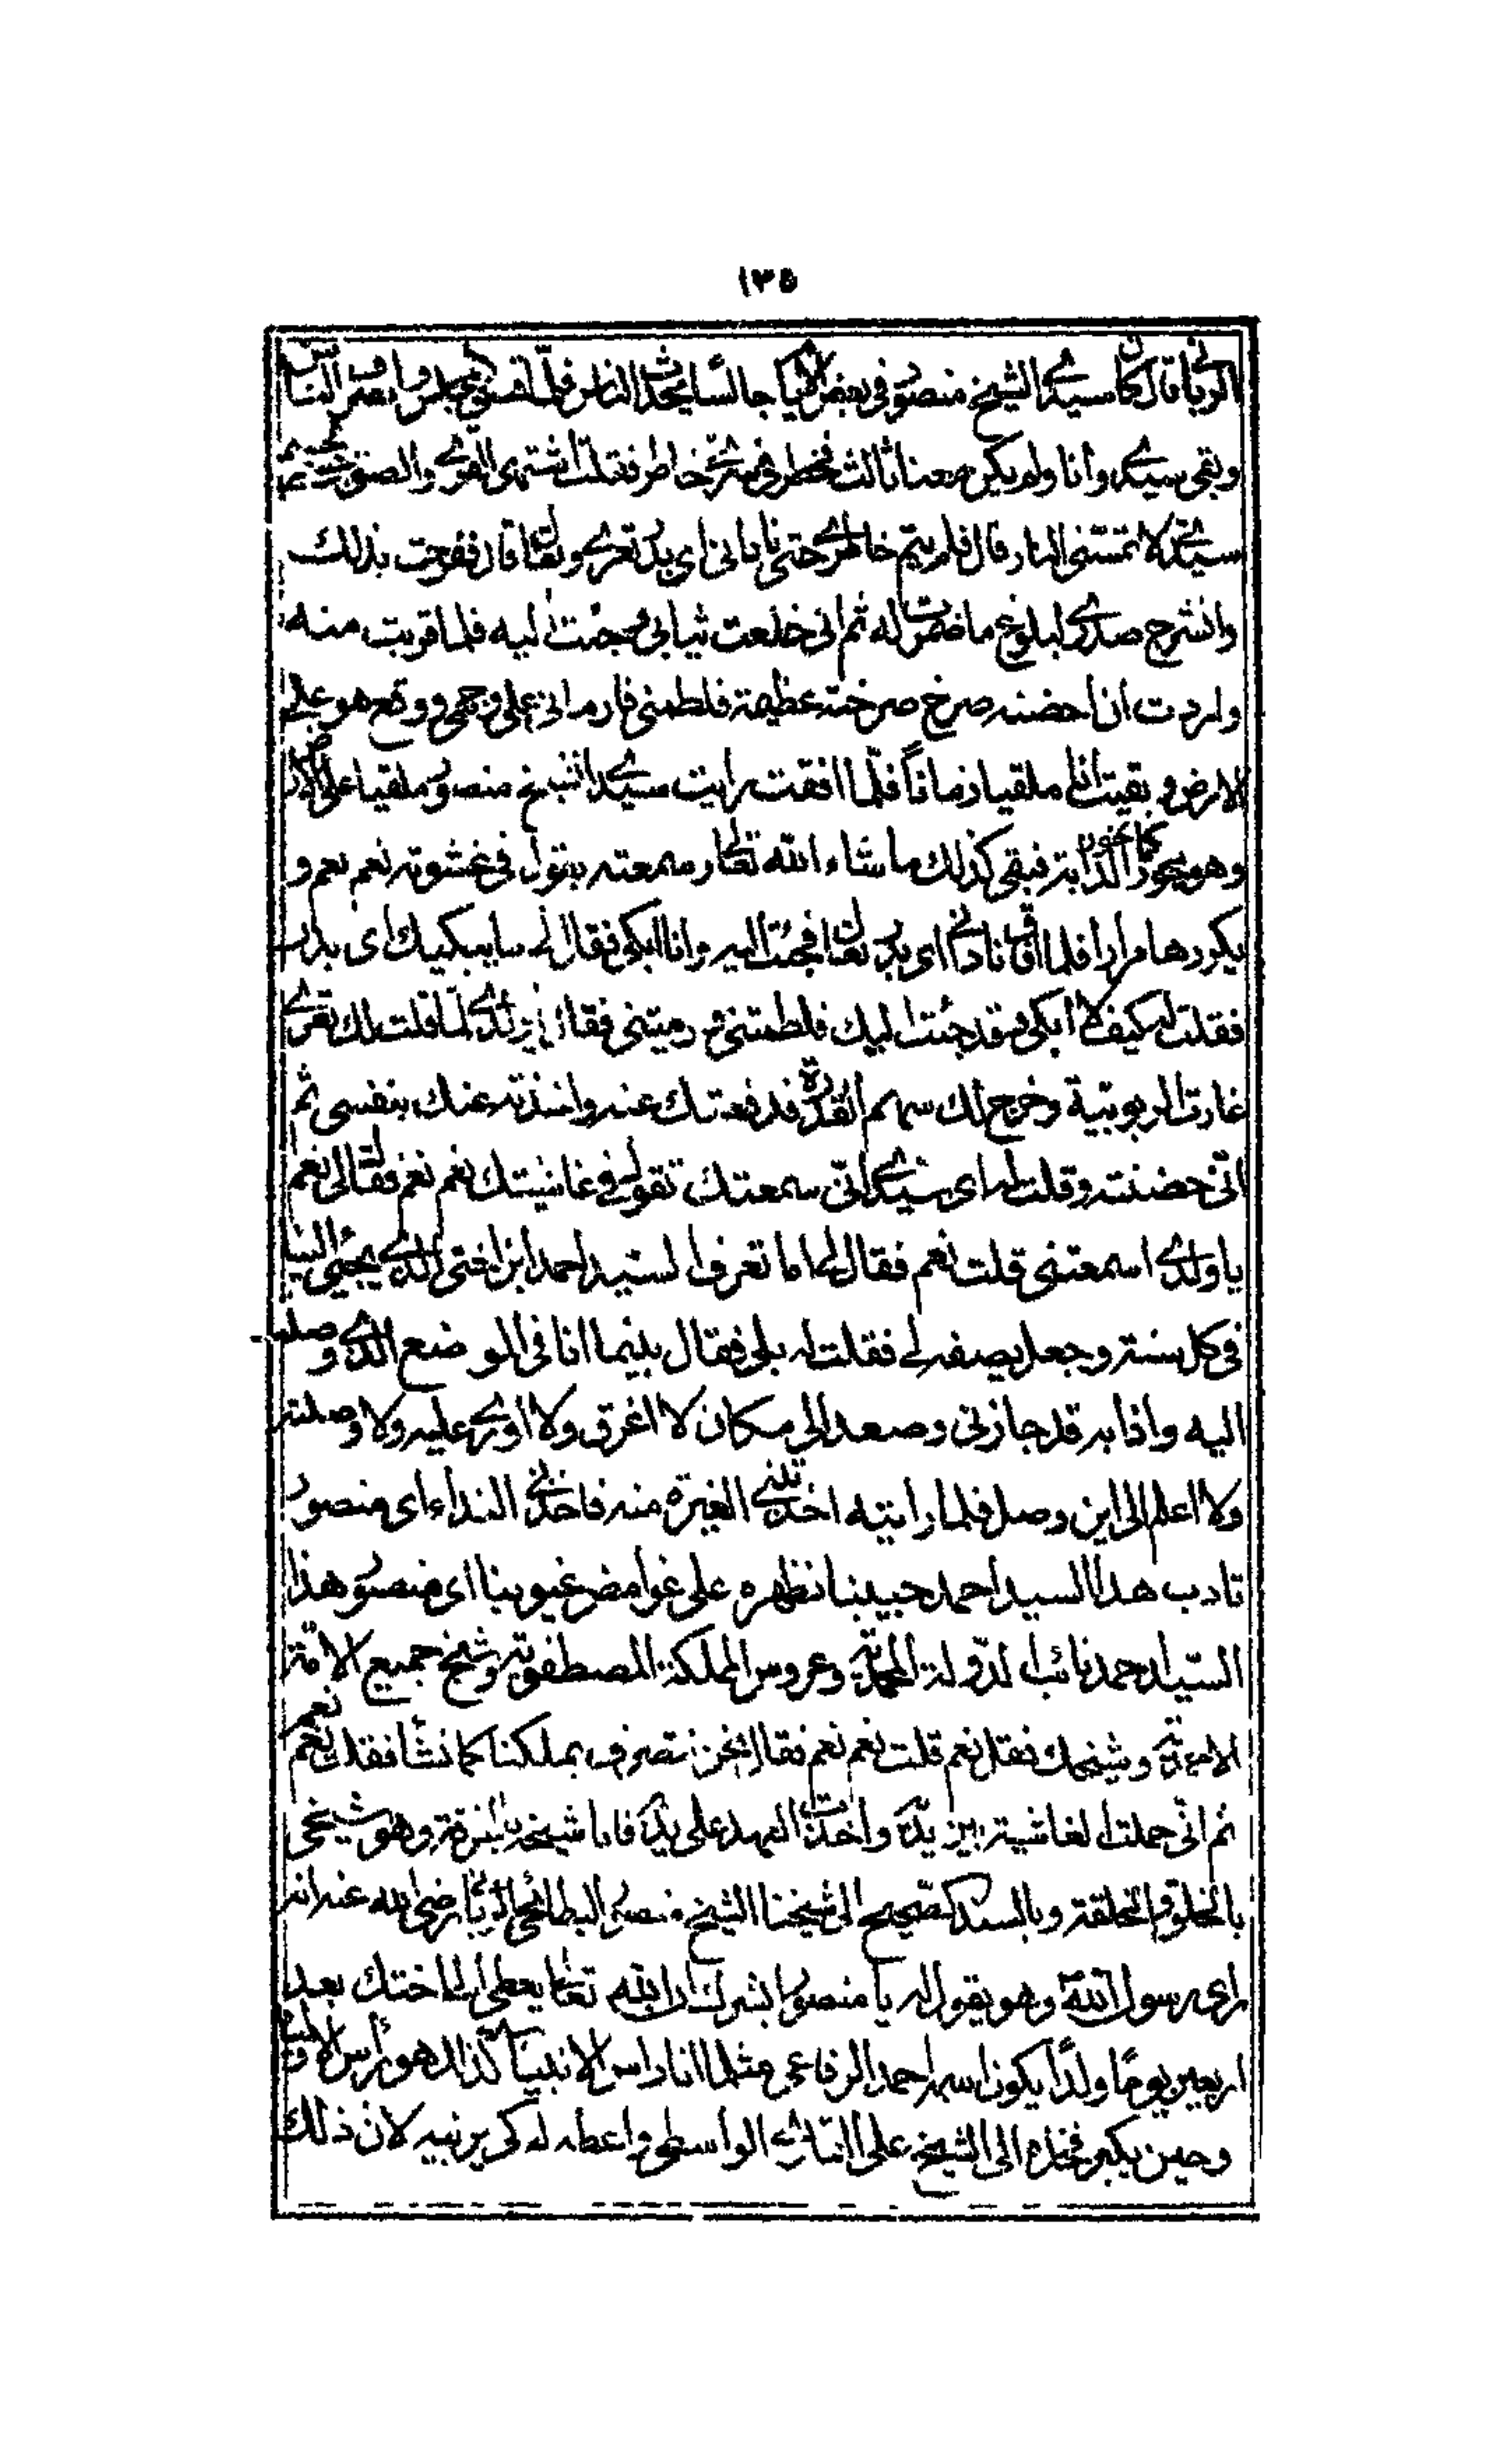 ١٣٥
الرباني قال كان سيدي الشيخ منصور في بعض الايام جالسا يحدث الناس فلما المجلس وانصرف الناس
وبقي سيدي وانا ولم يكن معنا ثالث فخطر في سري خاطر فقلت اشتهي والتصق
سيدي لا تمسني النار قال فلم يتم خاطري حتى ناداني اي بدر تعري وتعال قال ففرحت بذلك
وانشرح صدري لبلوغ ما ضمرت له ثم اني خلعت ثيابي وجئت اليه فلما قربت منه
واردت ان احضنه صرخ صرخة عظيمة فلطمني فارماني على وجهي ووقع هو على
الارض وبقيت انا ملقيا زمانا فلما افقت رايت سيدي الشيخ منصور ملقيا على الارض
وهو يخور كما تخور الدابة فبقي كذلك ما شاء الله تعالى وسمعته يقول في غشوته نعم نعم و
يكررها مرارا فلما افاق ناداني اي بدر تعال فجئت اليه وانا ابكي فقال لي ما يبكيك اي بدر
فقلت له كيف لا ابكي وقد جئت اليك فلطمتني ورميتني فقال اي ولدي لما قلت لك تعرى
غارت الربوبية وخرج لك سهم القدرة فدفعتك عنه واخذته عنك بنفسي ثم
اني حضنته وقلت له اي سيدي اني سمعتك تقول في غاشيتك نعم نعم فقال لي نعم
يا ولدي اسمعتني قلت نعم فقال لي اما تعرف السيد احمد ابن اختي الذي يجيئ الينا
في كل سنة وجعل يصفه لي فقلت له بلى فقال بينما انا في الموضع الذي وصلت
اليه واذا به قد جازني وصعد الى مكان لا اعرق ولا اوري عليه ولا وصلته
ولا اعلم الى اين وصل فلما رايته اخذتني الغيرة منه فاخذني النداء اي منصور
تادب هذا السيد احمد حبيبنا نظهره على غوامض غيوبنا اي منصور هذا
السيد احمد نائب الدولة المحمدية وعروس المملكة المصطفوية وشيخ جميع الامة
الاحمدية وشيخك فقل نعم قلت نعم نعم فقال نحن نتصرف بملكنا كما نشا فقل نعم نعم
ثم اني حملت الغاشية بين يديه واخذت العهد على يده فانا شيخه بالخرقة وهو شيخي
بالخلق والخلقة وبالسند الصحيح الى شيخنا الشيخ منصور البطائحي الرباني رضي الله عنه انه
راى رسول الله وهو يقول له يا منصور ابشرك ان الله تعالى يعطي الى اختك بعد
اربعين يوما ولدا يكون اسمه احمد الرفاعي مثلما انا راس الانبياء كذلك هو راس الاولياء
وحين يكبر فخذه الى الشيخ علي القاري الواسطي واعطه له كي يربيه لان ذلك